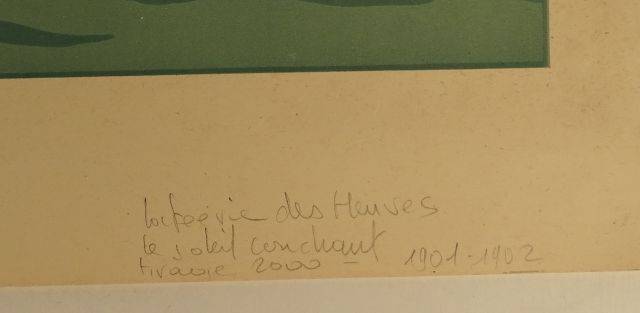 la féerie des Heures
le soleil couchant
tirage 2000 1901-1902